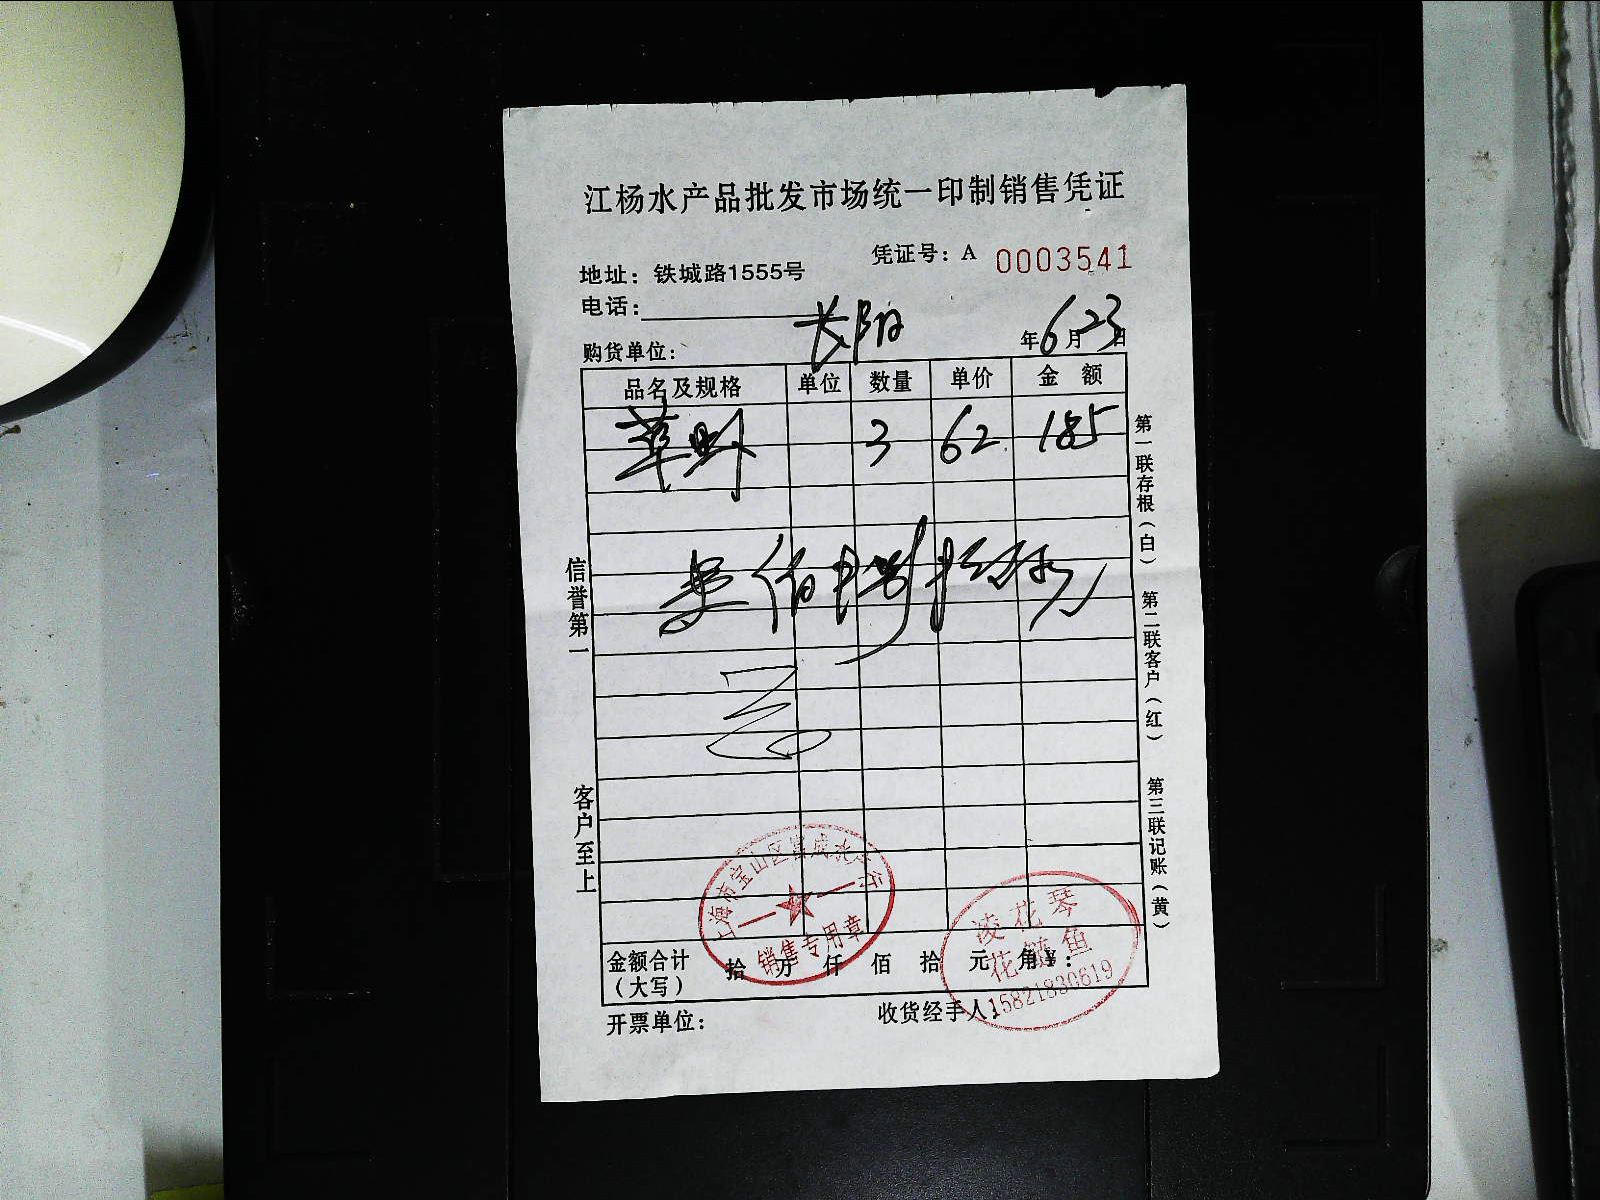 江杨水产品批发市场统一印制销售凭证
凭证号：A 0003541
地址：铁城路1555号
电话：
长阳
购货单位： 年6月23日
品名及规格 单位 数量 单价 金 额
3 62 185
信誉第一
客户至上
第一联存根（白）
第二联客户（红）
第三联记账（黄）
上海市宝山区
销售专用章
凌花琴
花鲢鱼
15821830619
金额合计（大写） 拾 万 仟 佰 拾 元 角 ¥：
开票单位： 收货经手人：